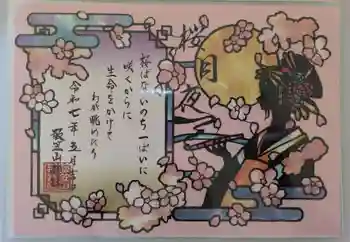 桜ばないのち一ぱいに
咲くからに
生命をかけて
わが眺めたり
令和七年五月